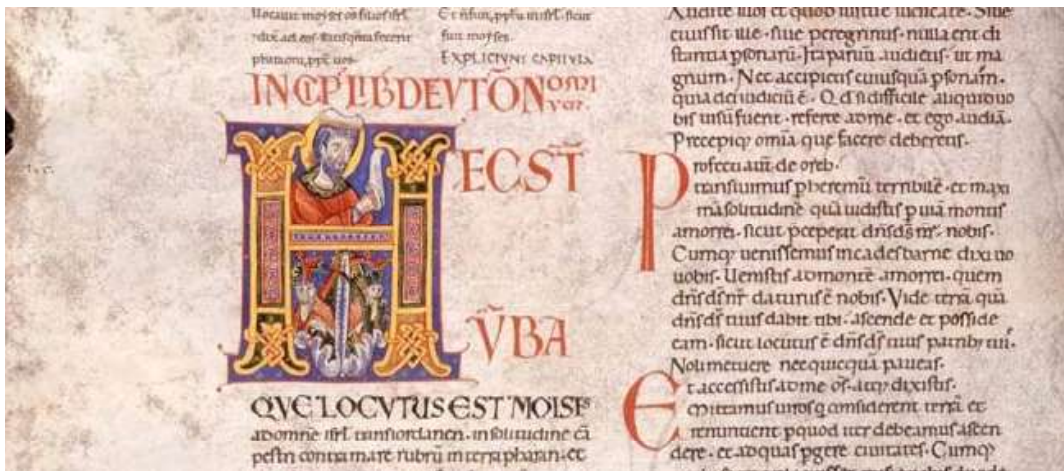 Uocauit moyses os filios isrl.
Et n̄ fuit ppħa in isrl. sicut
fuit moyses.
pharaoni, ppt̄ uos.
EXPLICIVNT CAPITVLA
INCIP̄ LIB̄ DEVT̄ON̄OMI
HEC SV̄T
V̄BA
QVE LOCVTUS EST MOISES
ad omnē isrl. trans iordanen. in solitudine cā
pestri contra mare rubrū int̄ pharan. et
Audite illos et quod iustū ē iudicate. Siue
ciuis sit ille. siue peregrinus. nulla erit di
stantia p̄sonarū. Ita paruū audietis. ut ma
gnum. Nec accipietis cuiusquā p̄sonam.
quia dei iudiciū ē. Q̇d si difficile aliquid uo
bis uisū fuerit. referte ad me. et ego audiā.
Precepiq; om̄ia que facere deberetis.
Profecti aut̄ de oreb.
transiuimus p heremū terribilē. et maxi
mā solitudinē quā uidistis p uiā montis
amorrei. sicut p̄ceperat dn̄s ds̄ nr̄ nobis.
Cumq; uenissemus in cades barne dixi uo
uobis. Uenistis ad montē amorrei. quem
dn̄s ds̄ nr̄ daturus ē nobis. Vide terrā quā
dn̄s ds̄ tuus dabit tibi. ascende et posside
eam. sicut locutus ē dn̄s ds̄ tuus patrib; tuis.
Noli metuere nec quicquā paueas.
Et accessistis ad me om̄s. atq; dixistis.
Mittamus uiros q̇ considerent terrā et
renuntient p quod iter debeamus ascen
dere. et ad quas pgere ciuitates. Cumq;